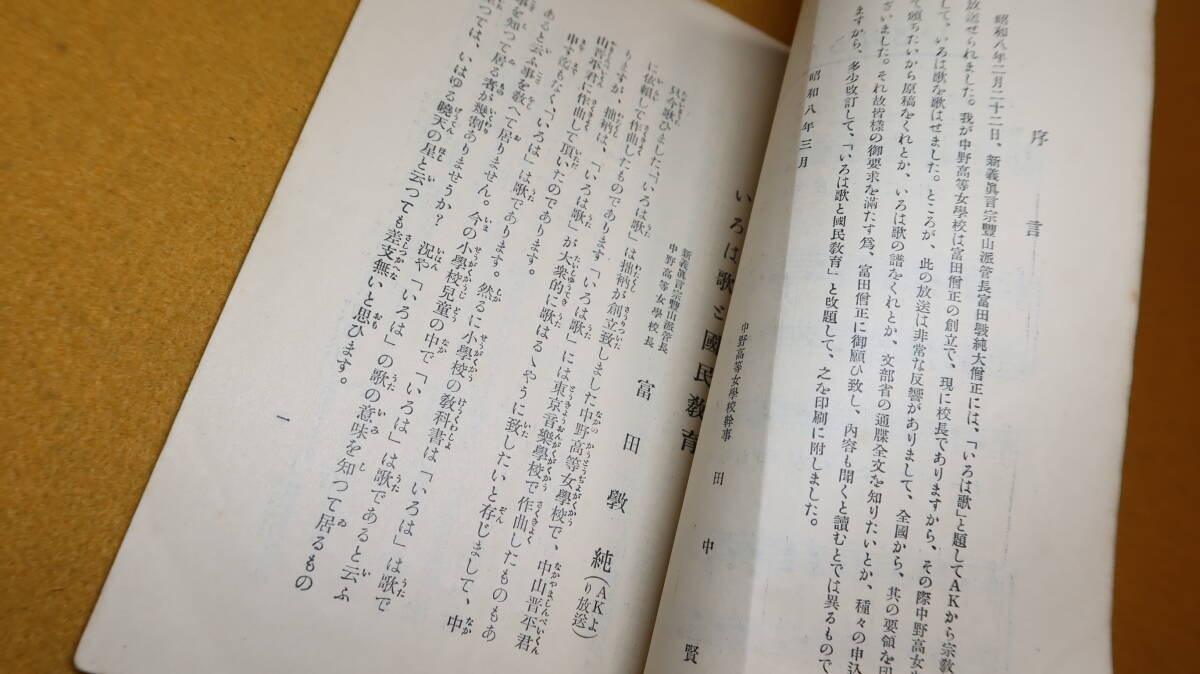 序言
昭和八年二月二十二日、新義眞言宗豐山派管長富田斅純大僧正には、「いろは歌」と題してAKから宗敎
放送せられました。我が中野高等女學校は富田僧正の創立で、現に校長でありますから、その際中野高女
して、いろは歌を歌はせました。ところが、此の放送は非常な反響がありまして、全國から、其の要領を印
て頒ちたいから原稿をくれとか、いろは歌の譜をくれとか、文部省の通牒全文を知りたいとか、種々の申込
ざいました。それ故皆樣の御要求を滿たす爲、富田僧正に御願ひ致し、內容も聞くと讀むとでは異るもので
ますから、多少改訂して、「いろは歌と國民敎育」と改題して、之を印刷に附しました。
昭和八年三月
中野高等女學校幹事 田中賢
いろは歌と國民敎育
新義眞言宗豐山派管長
中野高等女學校長
富田斅純(AKより放送)
只今歌ひました「いろは歌」は拙衲が創立致しました中野高等女學校で、中山晋平君
に依賴して作曲したものであります「いろは歌」には東京音樂學校で作曲したものもあ
りますが、拙衲は、「いろは歌」が大衆的に歌はるゝやうに致したいと存じまして、中
山晋平君に作曲して頂いたのであります。
申す迄もなく、「いろは」は歌であります。然るに小學校の敎科書は「いろは」は歌で
あると云ふ事を敎へて居りません。今の小學校兒童の中で「いろは」は歌であると云ふ
事を知つて居る者が幾割ありませうか? 況や「いろは」の歌の意味を知つて居るもの
つては、いはゆる曉天の星と云つても差支無いと思ひます。
一